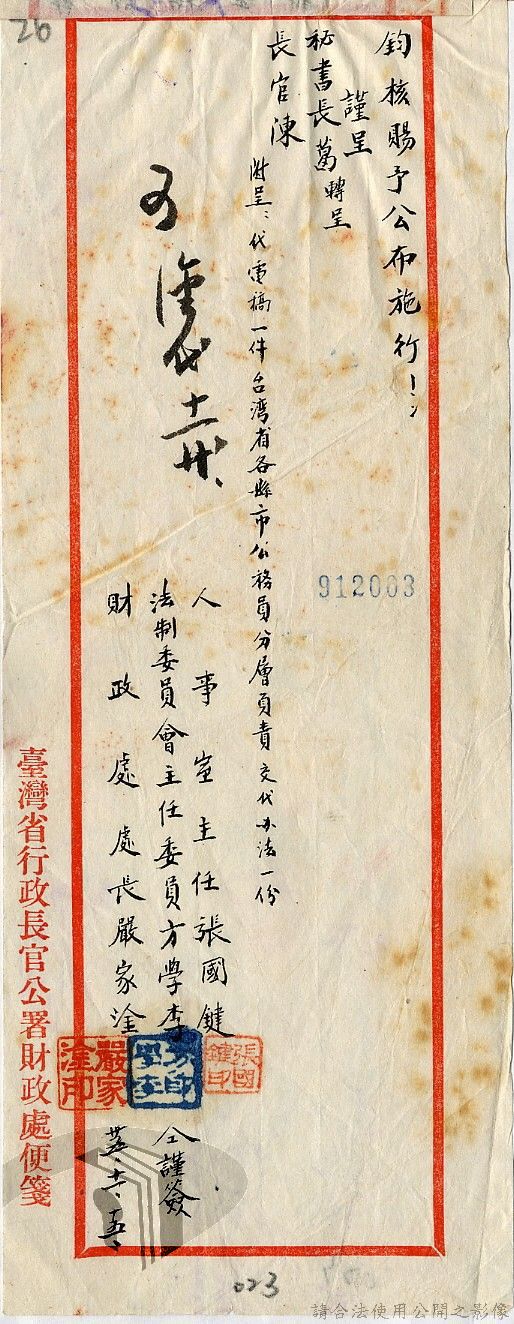 26
鈞核賜予公布施行！
謹呈
秘書長葛轉呈
長官陳
附呈：代電稿一件台湾省各縣市公務員分層負責交代办法一份
可
十一廿
912003
人事室主任張國鍵
法制委員會主任委員方學李
財政處處長嚴家淦
張國鍵印
方學李印
嚴家淦印
仝謹簽
卅五、十一、五、
臺灣省行政長官公署財政處便箋
023
請合法使用公開之影像